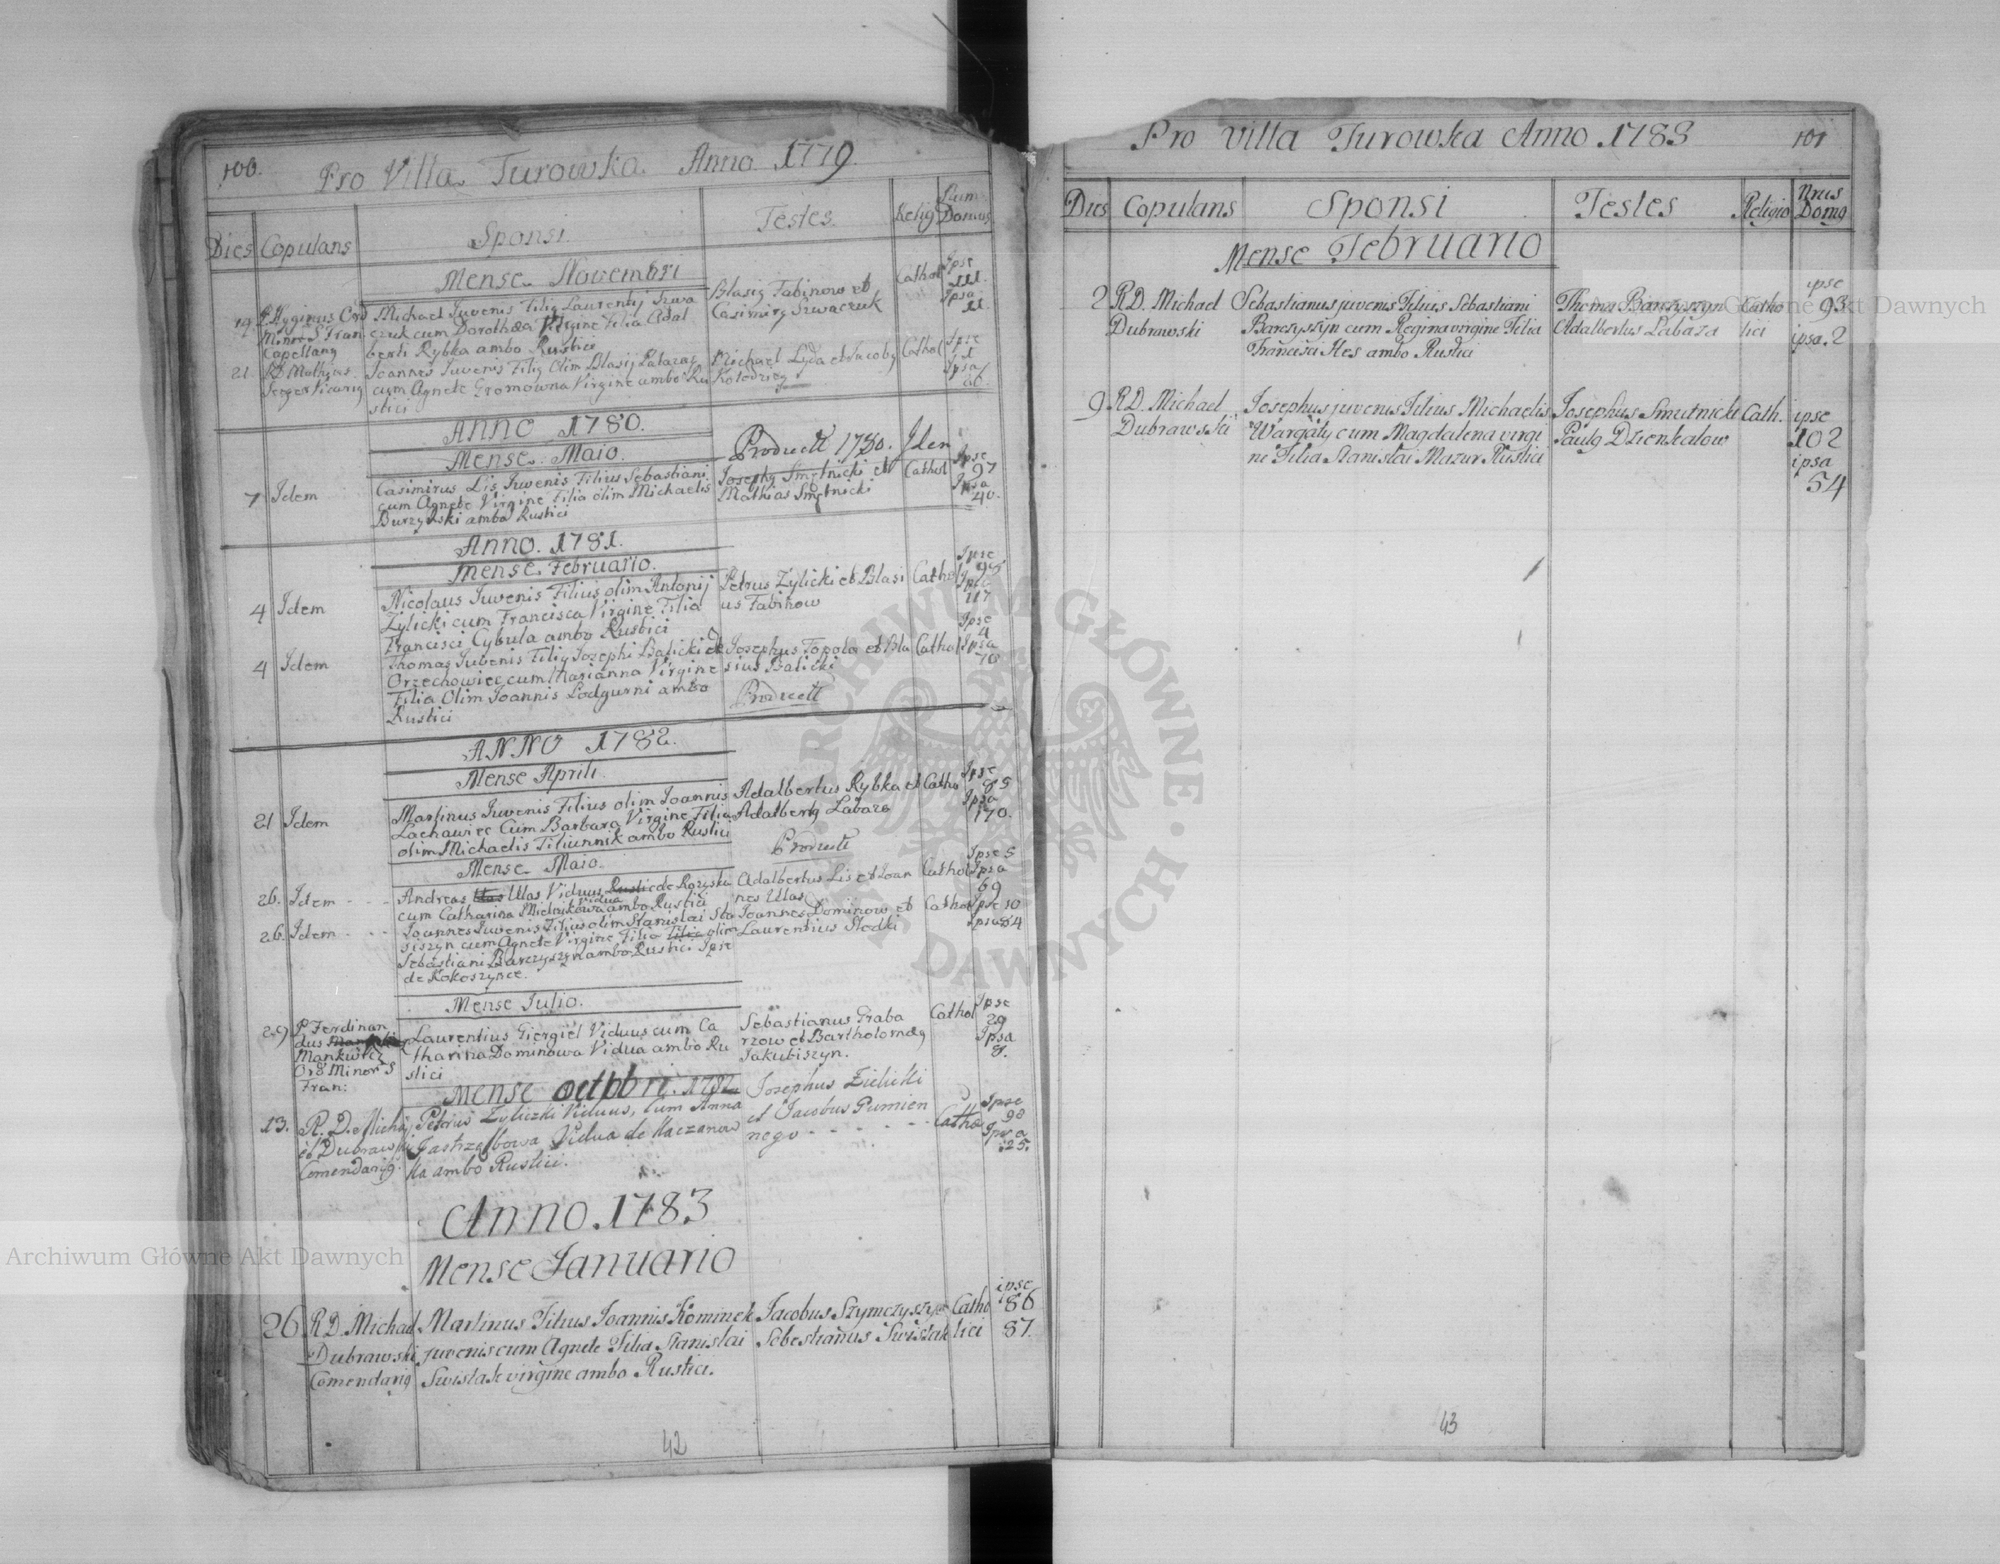 100.
Pro Villa Turowka. Anno 1779.
Dies Copulans Sponsi Testes Relig Num Domus
Mense Novembri
19. P. Hyginus Ord Michael Juvenis Filig Laurentij Szwa Blasig Fabinow et Cathol Ipse
Minor S Fran czuk cum Dorothea Virgine Filia Adal Casimirg Szwaczuk Ipsa
Capellang berti Rybka ambo Rustici
21. RD Mathias Joannes Juvenis Filig Olim Blasij Michael Lyda et Jacobg Cathol Ipse
Vicarig cum Agnete Gromowna Virgine ambo Ru Kolodziey Ipsa
stici
ANNO 1780.
Mense Maio. 1780. Idem
7 Idem Casimirus Lis Juvenis Filius Sebastiani Josephg Smętnicki et Cathol Ipse 97
cum Agnete Virgine Filia olim Michaelis Mathias Smętnicki Ipsa 40.
Burzynski ambo Rustici
Anno. 1781.
Mense Februario.
4 Idem Nicolaus Juvenis Filius olim Antonij Petrus Zylicki et Blasi Cathol Ipse
Zylicki cum Francisca Virgine Filia us Fabinow 117
Francisci Cybula ambo Rustici
4 Idem Thomas Juvenis Filig Josephi Balicki de Josephus Topola et Bla Cathol Ipse 4
Orzechowiec cum Marianna Virgine sius Balicki Ipsa 70
Filia Olim Joannis Podgurni ambo
Rustici
ANNO 1782.
Mense Aprili.
21 Idem Martinus Juvenis Filius olim Joannis Adalbertus Rybka et Catho Ipse 85
Lachawiec Cum Barbara Virgine Filia Adalbertg Labaza Ipsa 170.
olim Michaelis ambo Rustici
Mense Maio.
26. Idem - - - Andreas Ulas Viduus de Adalbertus Lis et Joan Cathol Ipse 5
cum Catharina Vidua ambo Rustici nes Ulas Ipsa 69
26. Idem - - - Joannes Juvenis Filius olim Stanislai Sta Joannes Dominow et Cathol Ipse 10
siszyn cum Agnete Virgine Filia olim Laurentius Slodki Ipsa 84
Sebastiani Barczyszyn ambo Rustici. Ipse
de Kokoszynce.
Mense Julio.
29 P Ferdinan Laurentius Giergiel Viduus cum Ca Sebastianus Graba Cathol Ipse 29
dus tharina Dominowa Vidua ambo Ru rzow et Bartholomeg Ipsa 8.
Mankiwicz stici Jakubiszyn.
Ord Minor S
Fran:
Mense octobri. 1782
13. R. D. Micha Petrus Zyliczki Viduus, Cum Anna Josephus Zielicki Catho Ipse 90
el Dubrawski Jastrzębowa Vidua de Kaczanow et Jacobus Pumien Ipsa 125.
Comendarig. ka ambo Rustici. nego - - - - - -
Anno. 1783
Mense Januario
26 R.D. Michael Martinus Filius Joannis Kominek Jacobus Szymczyszyn Catho ipse 86
Dubrawski juvenis cum Agnete Filia Stanislai Sebestianus Swistak lici 87.
Comendarig Swistak virgine ambo Rustici.
42
Pro Villa Turowka Anno 1783
101
Dies Copulans Sponsi Testes Religio Nrus Domg
Mense Februario
2 R.D. Michael Sebastianus juvenis Filius Sebastiani Thomas Barczyszyn Catho ipse 93
Dubrawski Barczyszyn cum Regina virgine Filia Adalbertus Labaza lici ipsa. 2
Francisci Hes ambo Rustici
9 R.D. Michael Josephus juvenis Filius Michaelis Josephus Smutnicki Cath. ipse
Dubrawski Wargaty cum Magdalena virgi Paulg Dzienkalow 102
ne Filia Stanislai Mazur Rustici ipsa
54
43
Archiwum Główne Akt Dawnych
Archiwum Główne Akt Dawnych
ARCHIWUM GŁÓWNE AKT DAWNYCH